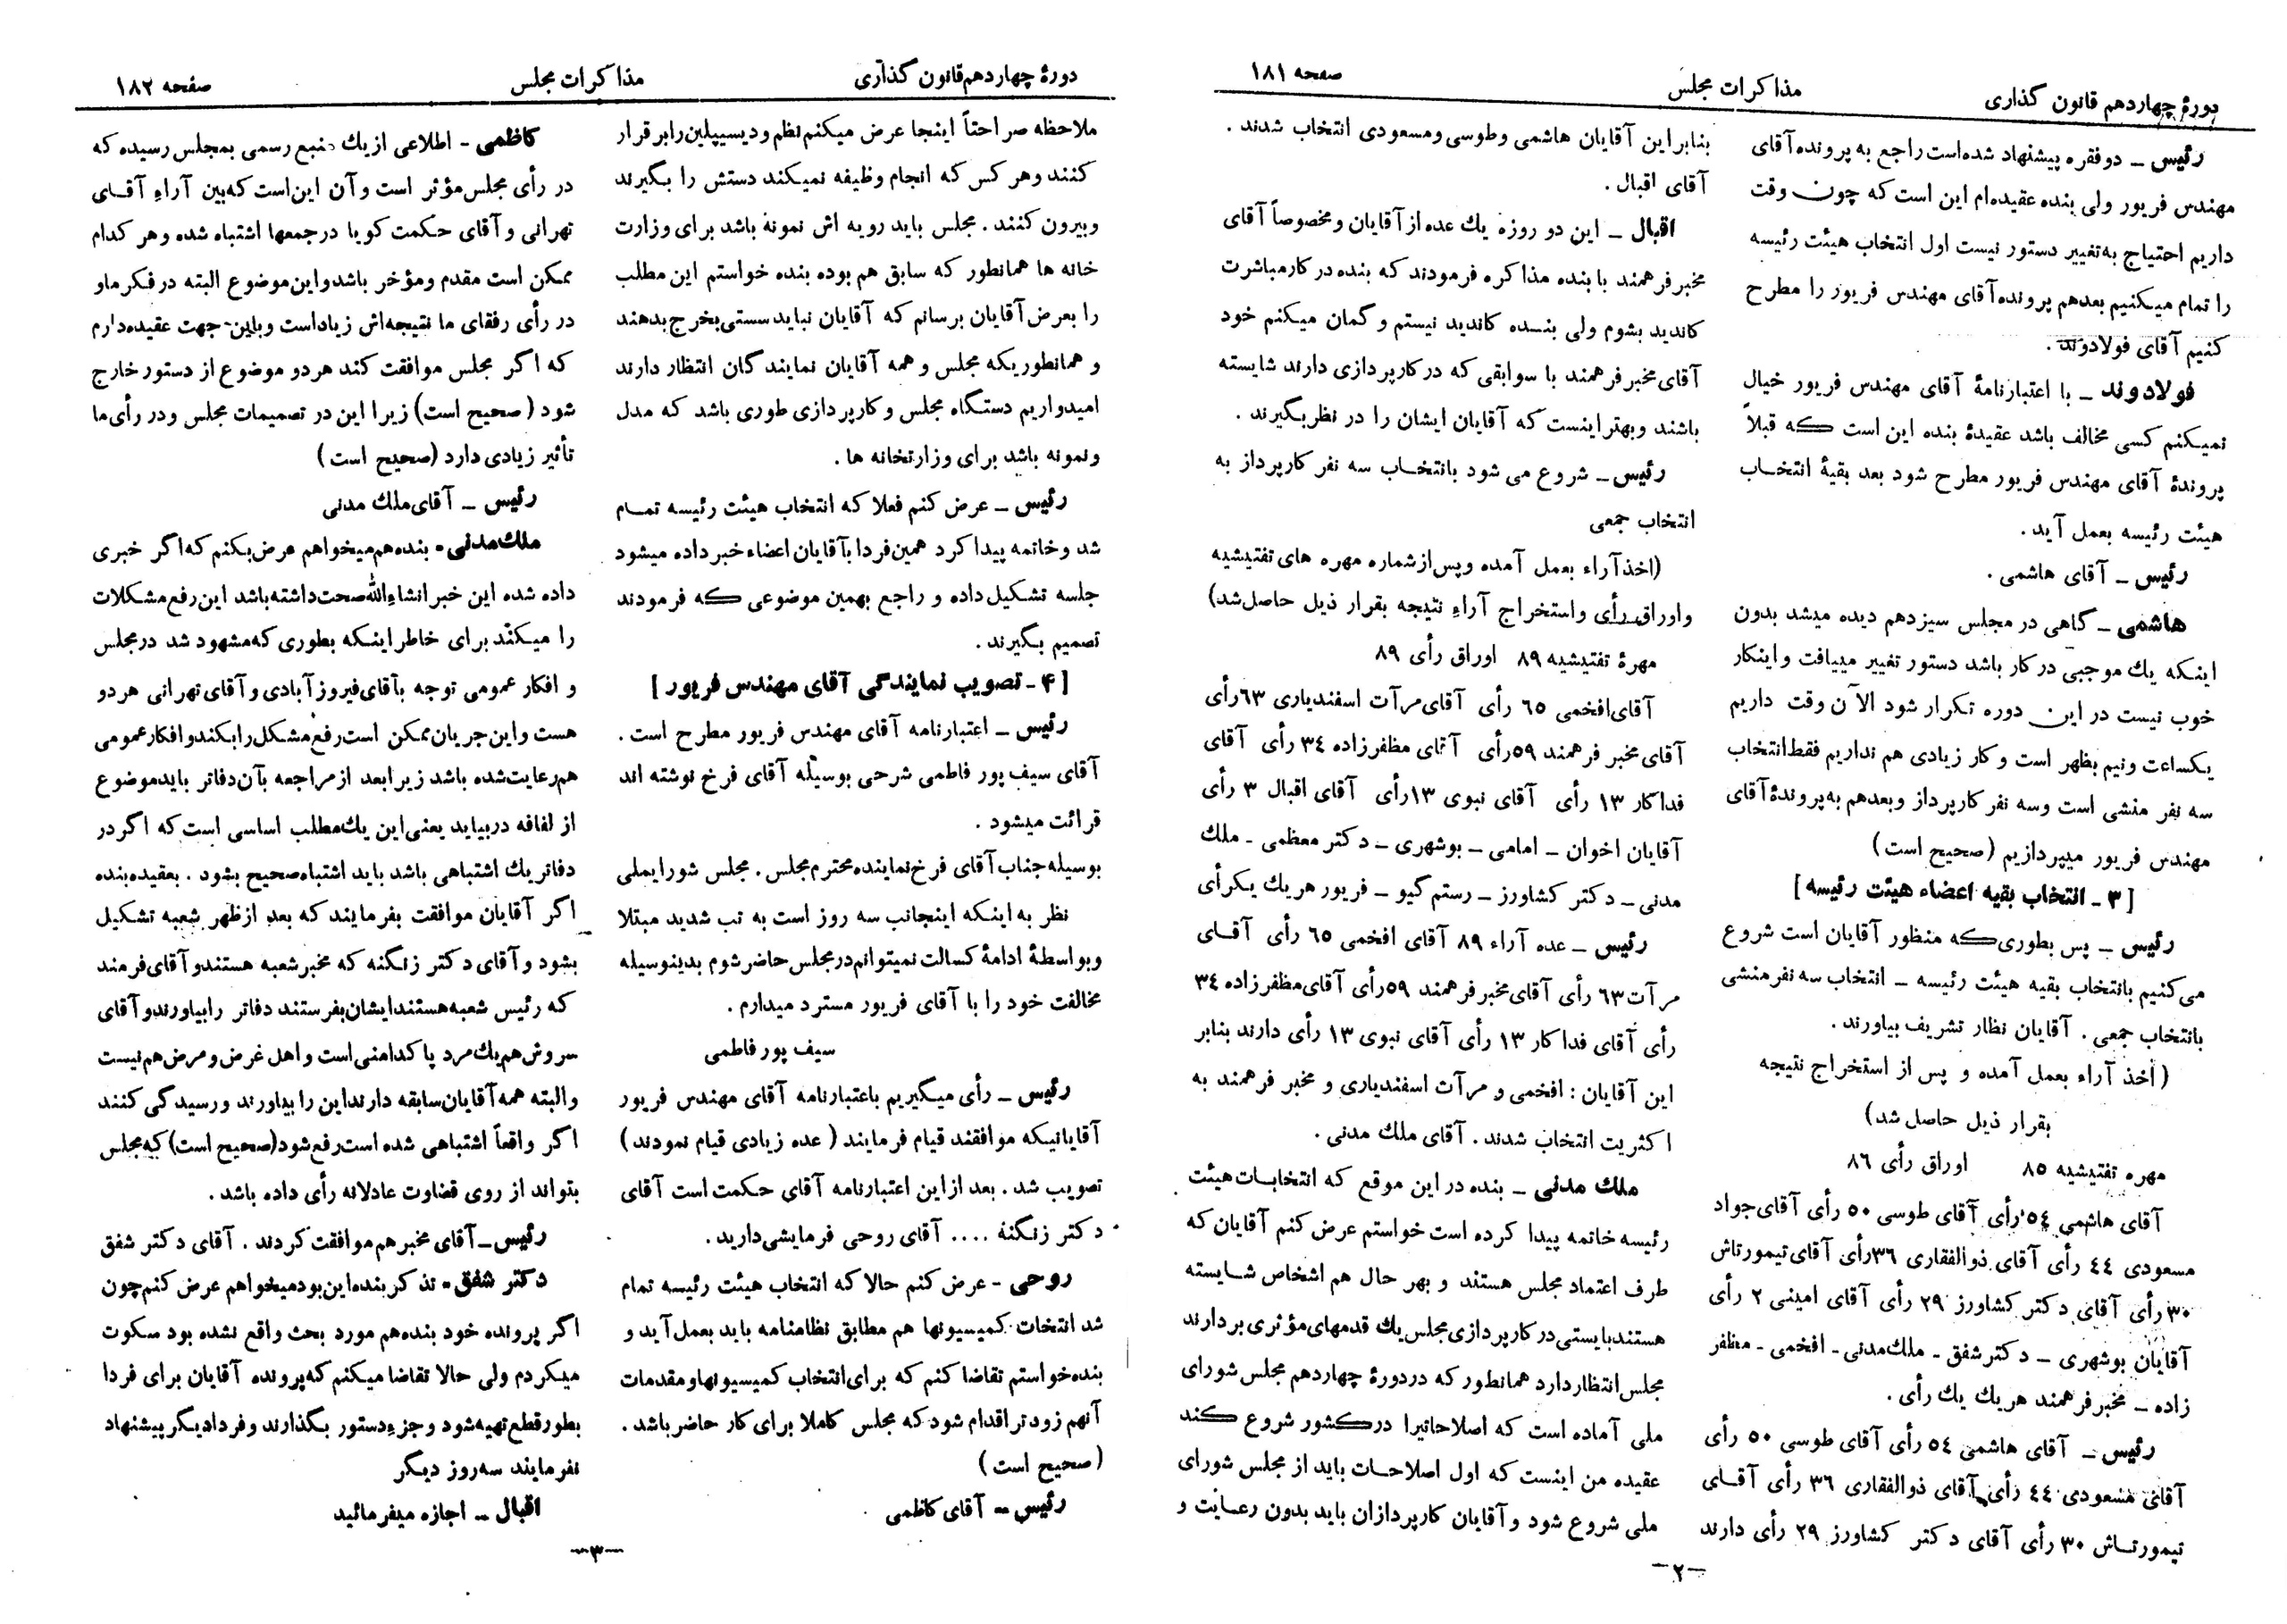 دورهٔ چهاردهم قانون گذاری
مذاکرات مجلس
صفحه ۱۸۱
رئیس ــ دوفقره پیشنهاد شده‌است راجع به پرونده آقای
مهندس فریور ولی بنده عقیده‌ام این است که چون وقت
داریم احتیاج به‌تغییر دستور نیست اول انتخاب هیئت رئیسه
را تمام میکنیم بعدهم پرونده آقای مهندس فریور را مطرح
کنیم آقای فولادوند .
فولادوند ــ با اعتبارنامهٔ آقای مهندس فریور خیال
نمیکنم کسی مخالف باشد عقیدهٔ بنده این است که قبلاً
پروندهٔ آقای مهندس فریور مطرح شود بعد بقیهٔ انتخاب
هیئت رئیسه بعمل آید .
رئیس ــ آقای هاشمی .
هاشمی ــ گاهی در مجلس سیزدهم دیده میشد بدون
اینکه یك موجبی در کار باشد دستور تغییر مییافت و اینکار
خوب نیست در این دوره تکرار شود الآن وقت داریم
یکساعت ونیم بظهر است و کار زیادی هم نداریم فقط انتخاب
سه نفر منشی است وسه نفر کارپرداز وبعدهم به پروندهٔ آقای
مهندس فریور میپردازیم (صحیح است)
[ ۳ ـ انتخاب بقیه اعضاء هیئت رئیسه ]
رئیس ــ پس بطوری‌که منظور آقایان است شروع
می‌کنیم بانتخاب بقیه هیئت رئیسه ــ انتخاب سه نفر منشی
بانتخاب جمعی . آقایان نظار تشریف بیاورند .
(اخذ آراء بعمل آمده و پس از استخراج نتیجه
بقرار ذیل حاصل شد)
مهره تفتیشیه ۸۵   اوراق رأی ۸۶
آقای هاشمی ٥٤ رأی آقای طوسی ٥۰ رأی آقای جواد
مسعودی ٤٤ رأی آقای ذوالفقاری ۳٦ رأی آقای تیمورتاش
۳۰ رأی آقای دکتر کشاورز ۲۹ رأی آقای امینی ۲ رأی
آقایان بوشهری ــ دکتر شفق ـ ملك مدنی ـ افخمی ـ مظفر
زاده ــ مخبر فرهمند هر یك یك رأی .
رئیس ــ آقای هاشمی ٥٤ رأی آقای طوسی ٥۰ رأی
آقای مسعودی ٤٤ رأی آقای ذوالفقاری ۳٦ رأی آقای
تیمورتاش ۳۰ رأی آقای دکتر کشاورز ۲۹ رأی دارند
بنابر این آقایان هاشمی وطوسی ومسعودی انتخاب شدند .
آقای اقبال .
اقبال ــ این دو روزه یك عده از آقایان ومخصوصاً آقای
مخبر فرهمند با بنده مذاکره فرمودند که بنده در کار مباشرت
کاندید بشوم ولی بنده کاندید نیستم و گمان میکنم خود
آقای مخبر فرهمند با سوابقی که در کارپردازی دارند شایسته
باشند وبهتر اینست که آقایان ایشان را در نظر بگیرند .
رئیس ــ شروع می شود بانتخاب سه نفر کارپرداز به
انتخاب جمعی
(اخذ آراء بعمل آمده وپس از شماره مهره های تفتیشیه
واوراق رأی واستخراج آراء نتیجه بقرار ذیل حاصل شد)
مهرهٔ تفتیشیه ۸۹   اوراق رأی ۸۹
آقای افخمی ٦٥ رأی آقای مرآت اسفندیاری ٦۳ رأی
آقای مخبر فرهمند ٥۹ رأی آقای مظفرزاده ۳٤ رأی آقای
فداکار ۱۳ رأی آقای نبوی ۱۳ رأی آقای اقبال ۳ رأی
آقایان اخوان ــ امامی ــ بوشهری ــ دکتر معظمی ـ ملك
مدنی ــ دکتر کشاورز ــ رستم گیو ــ فریور هر یك یکرأی
رئیس ــ عده آراء ۸۹ آقای افخمی ٦٥ رأی آقای
مرآت ٦۳ رأی آقای مخبر فرهمند ٥۹ رأی آقای مظفرزاده ۳٤
رأی آقای فداکار ۱۳ رأی آقای نبوی ۱۳ رأی دارند بنابر
این آقایان : افخمی و مرآت اسفندیاری و مخبر فرهمند به
اکثریت انتخاب شدند . آقای ملك مدنی .
ملك مدنی ــ بنده در این موقع که انتخابات هیئت
رئیسه خاتمه پیدا کرده است خواستم عرض کنم آقایان که
طرف اعتماد مجلس هستند و بهر حال هم اشخاص شایسته
هستند بایستی در کارپردازی مجلس یك قدمهای مؤثری بردارند
مجلس انتظار دارد همانطور که در دورهٔ چهاردهم مجلس شورای
ملی آماده است که اصلاحاتیرا در کشور شروع کند
عقیده من اینست که اول اصلاحات باید از مجلس شورای
ملی شروع شود و آقایان کارپردازان باید بدون رعایت و
ــ۲ــ
دورهٔ چهاردهم قانون گذاری
مذاکرات مجلس
صفحه ۱۸۲
ملاحظه صراحتاً اینجا عرض میکنم نظم و دیسیپلین را برقرار
کنند وهر کس که انجام وظیفه نمیکند دستش را بگیرند
وبیرون کنند . مجلس باید رویه اش نمونه باشد برای وزارت
خانه ها همانطور که سابق هم بوده بنده خواستم این مطلب
را بعرض آقایان برسانم که آقایان نباید سستی بخرج بدهند
و همانطوریکه مجلس و همه آقایان نمایندگان انتظار دارند
امیدواریم دستگاه مجلس و کارپردازی طوری باشد که مدل
ونمونه باشد برای وزارتخانه ها .
رئیس ــ عرض کنم فعلا که انتخاب هیئت رئیسه تمام
شد وخاتمه پیدا کرد همین فردا بآقایان اعضاء خبر داده میشود
جلسه تشکیل داده و راجع بهمین موضوعی که فرمودند
تصمیم بگیرند .
[ ۴ ـ تصویب نمایندگی آقای مهندس فریور ]
رئیس ــ اعتبارنامه آقای مهندس فریور مطرح است .
آقای سیف پور فاطمی شرحی بوسیله آقای فرخ نوشته اند
قرائت میشود .
بوسیله جناب آقای فرخ نماینده محترم مجلس . مجلس شورایملی
نظر به اینکه اینجانب سه روز است به تب شدید مبتلا
وبواسطهٔ ادامهٔ کسالت نمیتوانم در مجلس حاضر شوم بدینوسیله
مخالفت خود را با آقای فریور مسترد میدارم .
سیف پور فاطمی
رئیس ــ رأی میگیریم باعتبارنامه آقای مهندس فریور
آقایانیکه موافقند قیام فرمایند ( عده زیادی قیام نمودند )
تصویب شد . بعد از این اعتبارنامه آقای حکمت است آقای
دکتر زنگنه .... آقای روحی فرمایشی دارید .
روحی ـ عرض کنم حالا که انتخاب هیئت رئیسه تمام
شد انتخات کمیسیونها هم مطابق نظامنامه باید بعمل آید و
بنده خواستم تقاضا کنم که برای انتخاب کمیسیونها ومقدمات
آنهم زودتر اقدام شود که مجلس کاملا برای کار حاضر باشد .
( صحیح است )
رئیس ــ آقای کاظمی
کاظمی ـ اطلاعی از یك منبع رسمی بمجلس رسیده که
در رأی مجلس مؤثر است و آن این است که بین آراء آقای
تهرانی و آقای حکمت گویا در جمعها اشتباه شده وهر کدام
ممکن است مقدم ومؤخر باشد و این موضوع البته در فکر ما و
در رأی رفقای ما نتیجه‌اش زیاد است وباین جهت عقیده دارم
که اگر مجلس موافقت کند هر دو موضوع از دستور خارج
شود (صحیح است) زیرا این در تصمیمات مجلس ودر رأی ما
تأثیر زیادی دارد (صحیح است)
رئیس ــ آقای ملك مدنی
ملك مدنی ـ بنده هم میخواهم عرض بکنم که اگر خبری
داده شده این خبر انشاءالله صحت داشته باشد این رفع مشکلات
را میکند برای خاطر اینکه بطوری که مشهود شد در مجلس
و افکار عمومی توجه بآقای فیروز آبادی و آقای تهرانی هر دو
هست و این جریان ممکن است رفع مشکل را بکند و افکار عمومی
هم رعایت شده باشد زیرا بعد از مراجعه بآن دفاتر باید موضوع
از لفافه دربیاید یعنی این یك مطلب اساسی است که اگر در
دفاتر یك اشتباهی باشد باید اشتباه صحیح بشود . بعقیده بنده
اگر آقایان موافقت بفرمایند که بعد از ظهر شعبه تشکیل
بشود و آقای دکتر زنگنه که مخبر شعبه هستند و آقای فرمند
که رئیس شعبه هستند ایشان بفرستند دفاتر را بیاورند و آقای
سروش هم یك مرد پاکدامنی است و اهل غرض و مرض هم نیست
والبته همه آقایان سابقه دارند این را بیاورند ورسیدگی کنند
اگر واقعاً اشتباهی شده است رفع شود (صحیح است) که مجلس
بتواند از روی قضاوت عادلانه رأی داده باشد .
رئیس ــ آقای مخبر هم موافقت کردند . آقای دکتر شفق
دکتر شفق ـ تذکر بنده این بود میخواهم عرض کنم چون
اگر پرونده خود بنده هم مورد بحث واقع نشده بود سکوت
میکردم ولی حالا تقاضا میکنم که پرونده آقایان برای فردا
بطور قطع تهیه شود و جزء دستور بگذارند وفردا دیگر پیشنهاد
نفرمایند سه روز دیگر
اقبال ــ اجازه میفرمائید
ــ۳ــ